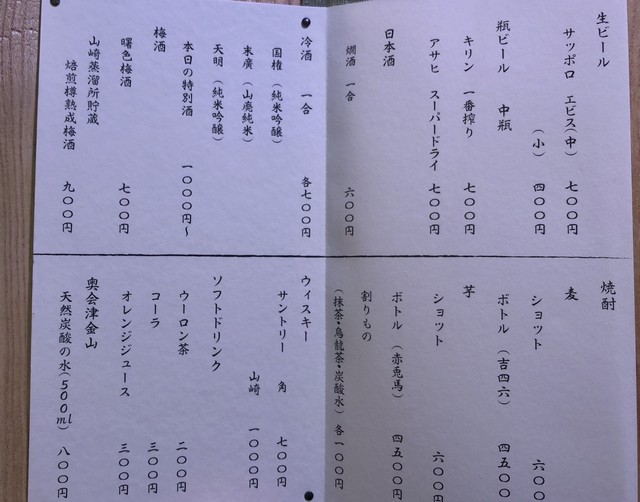 生ビール
サッポロ　ヱビス（中）　七〇〇円
（小）　四〇〇円
瓶ビール　中瓶
キリン　一番搾り　七〇〇円
アサヒ　スーパードライ　七〇〇円
日本酒
燗酒　一合　六〇〇円
冷酒　一合　各七〇〇円
国権（純米吟醸）
末廣（山廃純米）
天明（純米吟醸）
本日の特別酒　一〇〇〇円～
梅酒
曙色梅酒　七〇〇円
山崎蒸溜所貯蔵
焙煎樽熟成梅酒　九〇〇円
焼酎
麦
ショット　六〇〇
ボトル（吉四六）　四五〇〇
芋
ショット　六〇〇円
ボトル（赤兎馬）　四五〇〇円
割りもの
（抹茶・烏龍茶・炭酸水）各一〇〇円
ウィスキー
サントリー　角　七〇〇円
山崎　一〇〇〇円
ソフトドリンク
ウーロン茶　二〇〇円
コーラ　三〇〇円
オレンジジュース　三〇〇円
奥会津金山
天然炭酸の水（500ml）　八〇〇円